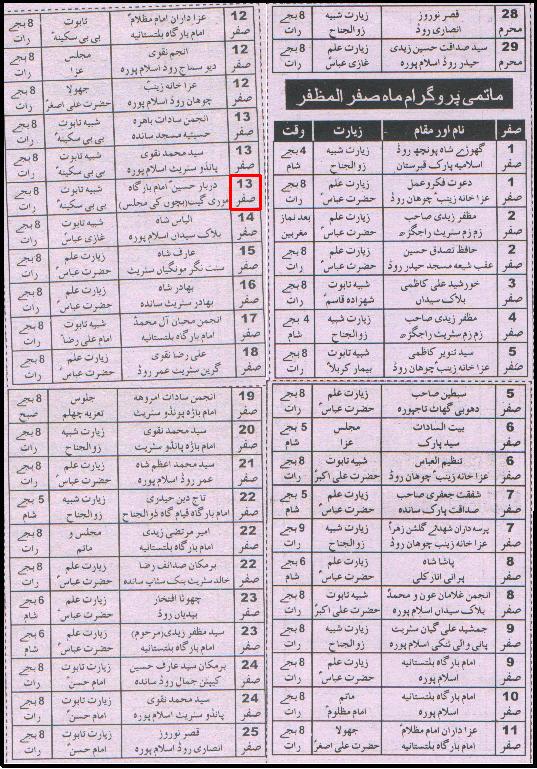 28 قصر نوروز زیارت شبیہ 8 بجے
محرم انصاری روڈ ذوالجناح رات
29 سید صداقت حسین زیدی زیارت علم 8 بجے
محرم حیدر روڈ اسلام پورہ غازی عباسؑ رات
ماتمی پروگرام ماہ صفر المظفر
صفر نام اور مقام زیارت وقت
1 گھوڑے شاہ پونچھ روڈ زیارت شبیہ 4 بجے
صفر اسلامیہ پارک قبرستان ذوالجناح شام
1 دعوت فکر و عمل زیارت علم 8 بجے
صفر عزا خانہ زینبؑ چوھان روڈ حضرت عباسؑ رات
2 مظفر زیدی صاحب زیارت علم بعد نماز
صفر زم زم سٹریٹ راجگڑھ حضرت عباسؑ مغربین
2 حافظ تصدق حسین زیارت علم 8 بجے
صفر عقب شیعہ مسجد حیدر روڈ حضرت عباسؑ رات
3 خورشید علی کاظمی شبیہ تابوت 8 بجے
صفر بلاک سیداں شہزادہ قاسمؑ رات
4 مظفر زیدی صاحب زیارت شبیہ 4 بجے
صفر زم زم سٹریٹ راجگڑھ ذوالجناح شام
5 سید تنویر کاظمی شبیہ تابوت 8 بجے
صفر عزا خانہ زینبؑ چوھان روڈ بیمار کربلاؑ رات
5 سبطین صاحب زیارت علم 8 بجے
صفر دھوبی گھاٹ تاجپورہ حضرت عباسؑ رات
6 بیت السادات مجلس 5 بجے
صفر سید پارک عزا شام
6 تنظیم العباس شبیہ تابوت 8 بجے
صفر عزا خانہ زینبؑ چوھان روڈ حضرت علی اکبرؑ رات
7 شفقت جعفری صاحب زیارت علم 5 بجے
صفر صداقت پارک ساندہ حضرت عباسؑ شام
7 پرسہ داران شھدائے گلشن زھراؑ زیارت شبیہ 9 بجے
صفر عزا خانہ زینبؑ چوھان روڈ ذوالجناح رات
8 پاشا شاہ زیارت علم 6 بجے
صفر پرانی انار کلی حضرت عباسؑ شام
8 انجمن غلامان عون و محمدؑ شبیہ تابوت 8 بجے
صفر بلاک سیداں اسلام پورہ حضرت علی اکبرؑ رات
9 جمشید علی گیان سٹریٹ زیارت شبیہ 8 بجے
صفر پانی والی ٹنکی اسلام پورہ ذوالجناح رات
9 امام بارگاہ بلتستانیہ زیارت علم 8 بجے
صفر اسلام پورہ حضرت عباسؑ رات
10 امام بارگاہ بلتستانیہ ماتم 8 بجے
صفر اسلام پورہ امام مظلومؑ رات
11 عزا داران امام مظلامؑ جھولا 8 بجے
صفر امام بارگاہ بلتستانیہ حضرت علی اصغرؑ رات
12 عزا داران امام مظلامؑ تابوت 8 بجے
صفر امام بارگاہ بلتستانیہ بی بی سکینہؑ رات
12 انجم نقوی مجلس 8 بجے
صفر دیو سماج روڈ اسلام پورہ عزا رات
12 عزا خانہ زینبؑ جھولا 8 بجے
صفر چوھان روڈ اسلام پورہ حضرت علی اصغرؑ رات
13 انجمن سادات باھرہ شبیہ تابوت 8 بجے
صفر حسینیہ مسجد ساندہ بی بی سکینہؑ رات
13 سید محمد نقوی شبیہ تابوت 8 بجے
صفر پانڈو سٹریٹ اسلام پورہ بی بی سکینہؑ رات
13 دربار حسینؑ امام بارگاہ شبیہ تابوت 8 بجے
صفر موری گیٹ (بچوں کی مجلس) بی بی سکینہؑ رات
14 الیاس شاہ شبیہ تابوت 8 بجے
صفر بلاک سیداں اسلام پورہ غازی عباسؑ رات
15 عارف شاہ زیارت علم 8 بجے
صفر سنت نگر مونگیاں سٹریٹ حضرت عباسؑ رات
16 بھادر شاہ زیارت علم 8 بجے
صفر بھادر سٹریٹ ساندہ حضرت عباسؑ رات
17 انجمن محبان آل محمدؑ شبیہ تابوت 8 بجے
صفر امام بارگاہ بلتستانیہ امام علی رضاؑ رات
18 علی رضا نقوی زیارت علم 8 بجے
صفر گرین سٹریٹ عمر روڈ حضرت عباسؑ رات
19 انجمن سادات امروھہ جلوس 8 بجے
صفر امام باڑہ پونڈو سٹریٹ تعزیہ چہلم صبح
20 سید محمد نقوی زیارت شبیہ 8 بجے
صفر امام باڑہ پانڈو سٹریٹ ذوالجناح رات
21 سید محمد اعظم شاہ زیارت علم 8 بجے
صفر عمر روڈ اسلام پورہ حضرت عباسؑ رات
22 تاج دین حیدری زیارت شبیہ 5 بجے
صفر امام بارگاہ قیام گاہ ذوالجناح ذوالجناح شام
22 امیر مرتضی زیدی مجلس و 8 بجے
صفر امام بارگاہ بلتستانیہ ماتم رات
22 برمکان صداقت رضا زیارت علم 8 بجے
صفر خالد سٹریٹ بنک سٹاپ ساندہ حضرت عباسؑ رات
23 چھوٹا افتخار زیارت علم 6 بجے
صفر بیدیاں روڈ حضرت عباسؑ شام
23 سید مظفر زیدی (مرحوم) زیارت علم 6 بجے
صفر امام بارگاہ بلتستانیہ حضرت عباسؑ شام
24 برمکان سید عارف حسین زیارت تابوت 8 بجے
صفر کیپٹن جمال روڈ ساندہ امام حسنؑ رات
24 سید محمد نقوی زیارت تابوت 8 بجے
صفر پانڈو سٹریٹ اسلام پورہ امام حسنؑ رات
25 قصر نوروز زیارت تابوت 8 بجے
صفر انصاری روڈ اسلام پورہ امام حسنؑ رات